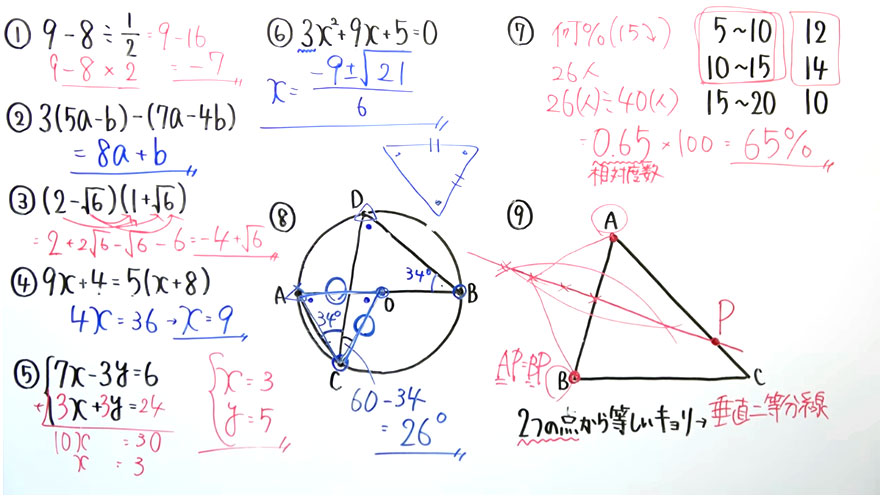 ① 9-8÷1/2=9-16
9-8×2 =-7
② 3(5a-b)-(7a-4b)
=8a+b
③ (2-√6)(1+√6)
=2+2√6-√6-6=-4+√6
④ 9x+4=5(x+8)
4x=36→x=9
⑤ {7x-3y=6
+ 3x+3y=24
10x =30
x =3
{x=3
y=5
⑥ 3x²+9x+5=0
x=(-9±√21)/6
⑧
D
A
O
B
C
34°
34°
60-34
=26°
⑦ 何%(15↓)
26人
26(人)÷40(人)
5~10 12
10~15 14
15~20 10
=0.65×100=65%
相対度数
⑨
A
P
AP=BP
B
C
2つの点から等しいキョリ→垂直二等分線